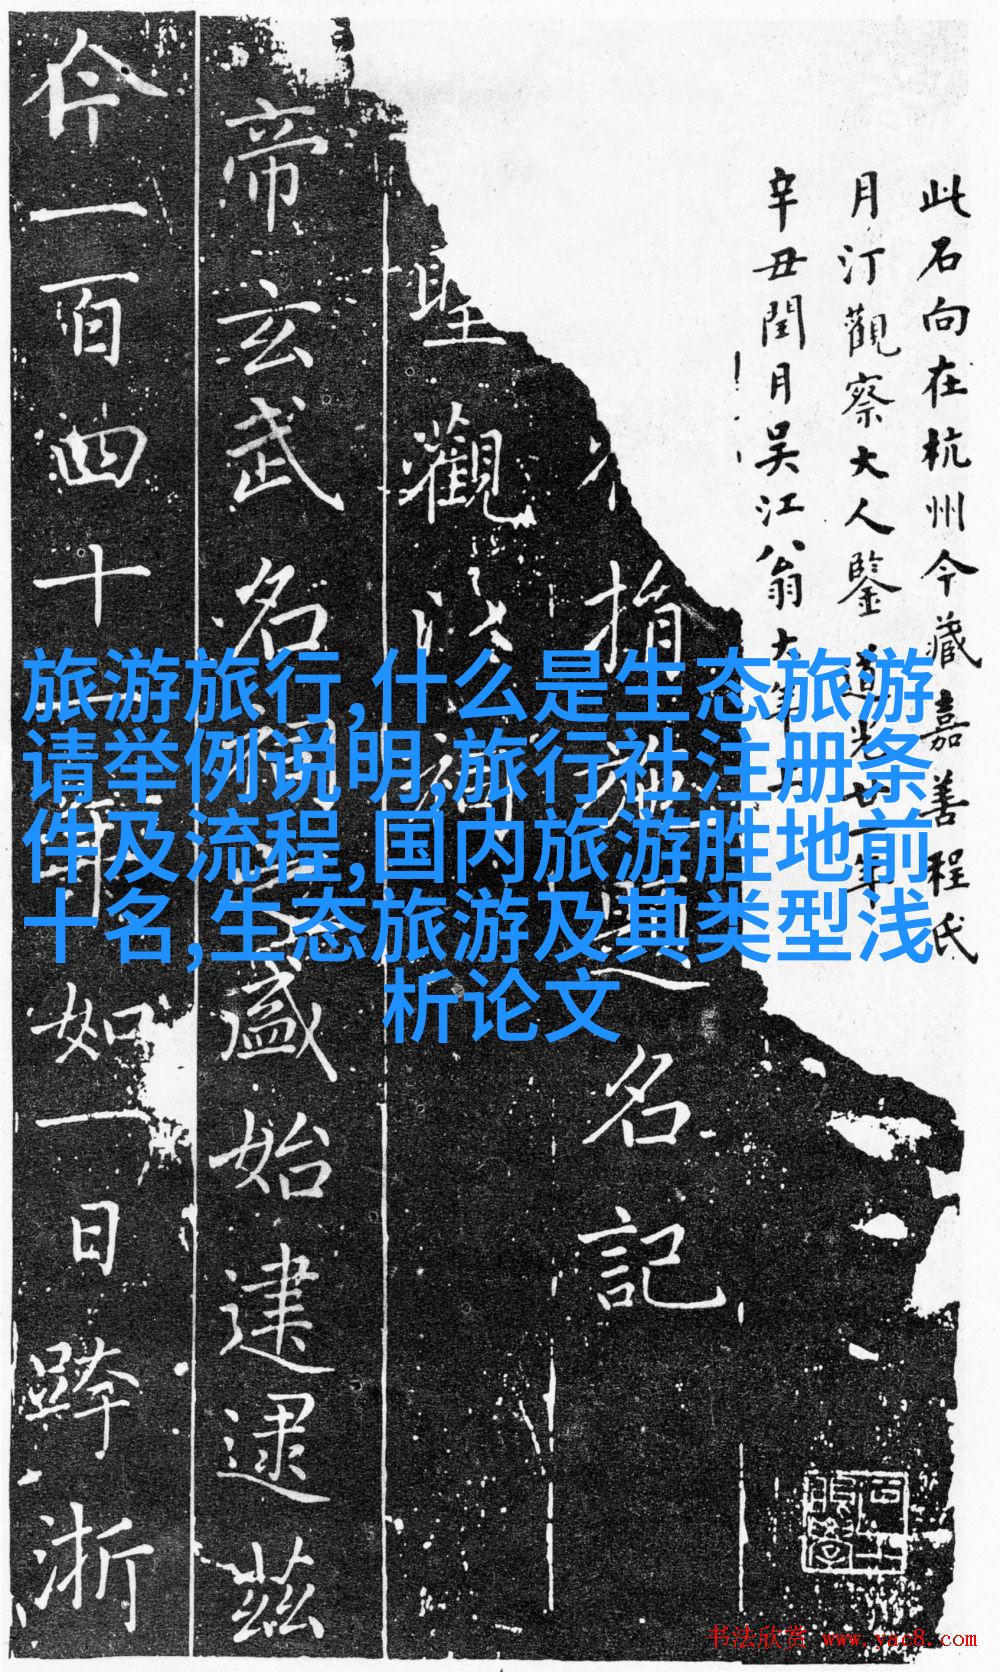 此石向在杭州今藏嘉善程氏
月汀觀察大人鑒 道光廿一年
辛丑閏月吳江翁大年
指施題名記
聖觀
帝玄武名盛始建逮茲
今一百四十二年如一日跨浙
旅游旅行,什么是生态旅游
请举例说明,旅行社注册条
件及流程,国内旅游胜地前
十名,生态旅游及其类型浅
析论文
书法欣赏 www.yac8.com